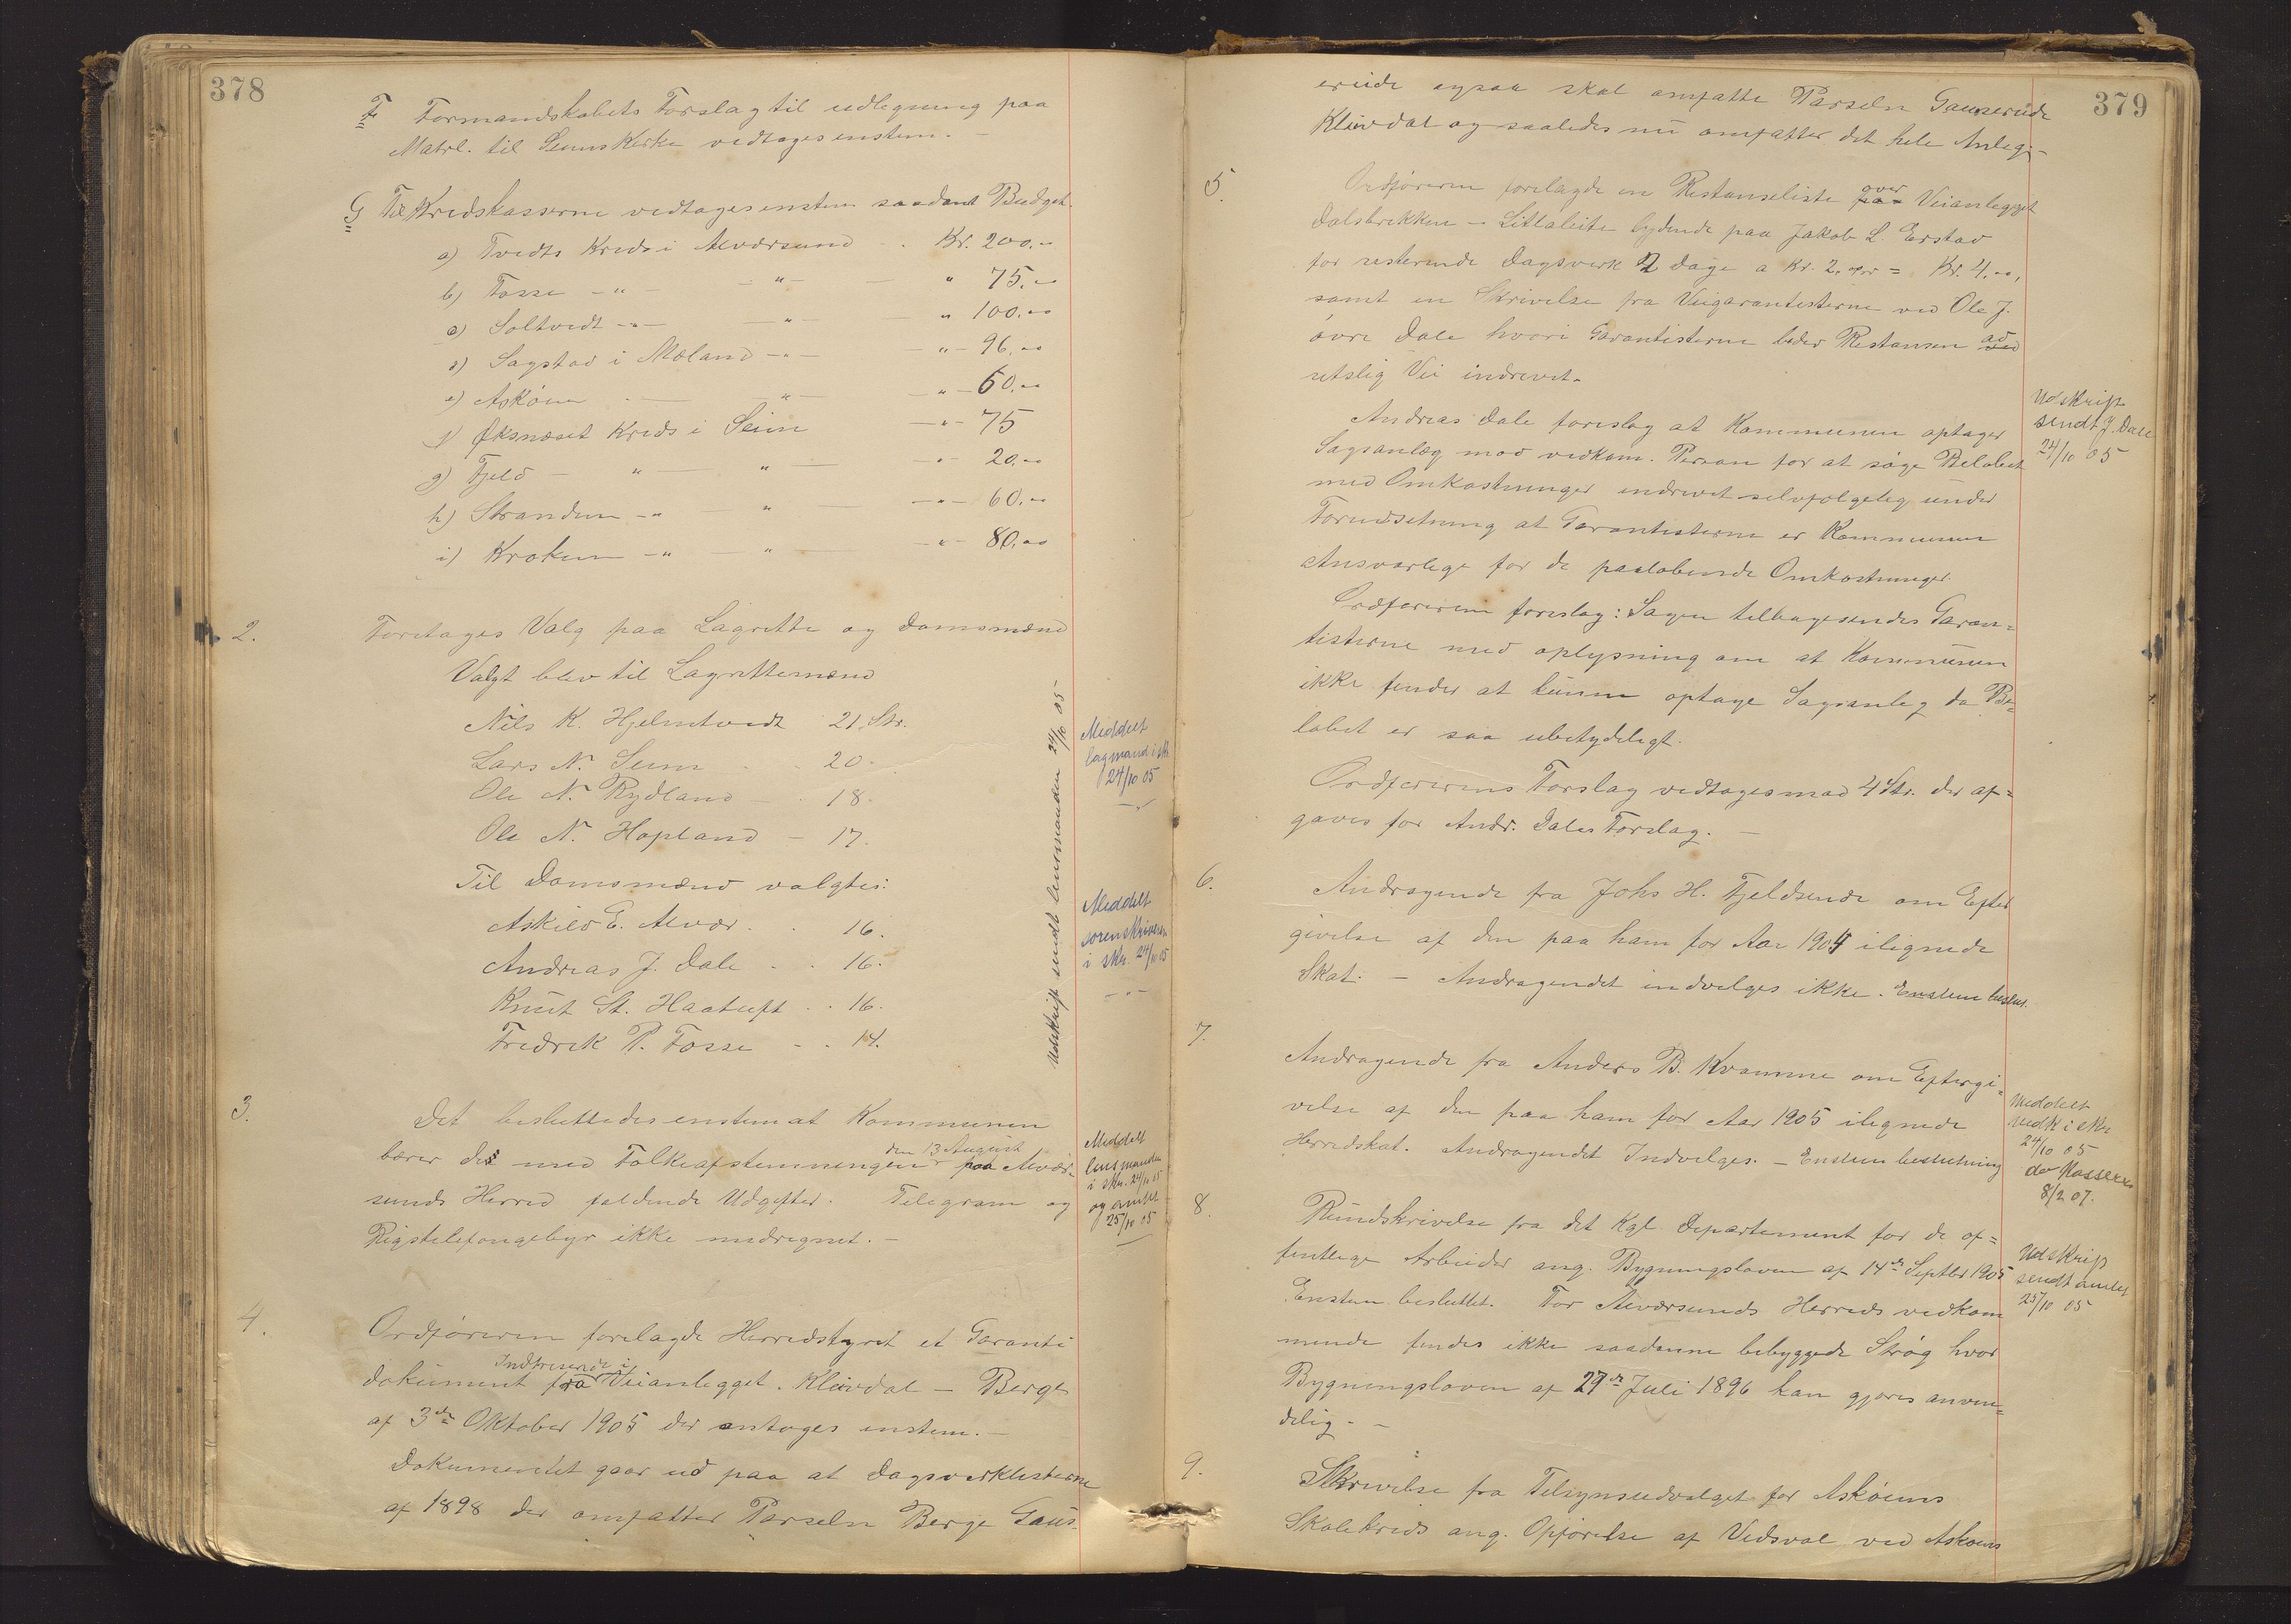 378
F Formandskabets Forslag til udlegning paa
Matrl. til Seims Kirke vedtages enstem. -
G Til Kredskasserne vedtages enstem saadant Budget.
a) Tvedts Kreds i Alversund - . Kr. 200.00
b) Fosse - " - - " - - " 75.00
c) Soltvedt - " - - " - - " 100.00
d) Sagstad i Mæland - " - - " - 96.00
e) Askøen - - " - - " - 60.00
f) Øksnæset Kreds i Seim - " - 75
g) Fjeld - " - " - - " - 20.00
h) Stranden - " - " - - " - 60.00
i) Kroken - " - " - - " - 80.00
2. Foretages Valg paa Lagrette og Domsmænd
Valgt blev til Lagrettemænd
Nils K. Hjelmtvedt 21. Str.
Lars N. Seim - . 20 -
Ole N. Rydland - . 18.
Ole N. Hopland - 17.
Til Domsmænd valgtes:
Askild E. Alver . . 16.
Andreas J. Dale . . 16.
Knut St. Haatuft . . 16.
Fredrik P. Fosse - . 14.
Udskrift sendt lensmanden 24/10 05
Meddelt
lagmand i skr
24/10 05
Meddelt
sorenskriveren
i skr. 24/10 05
3. Det besluttedes enstem at Kommunen
bærer de med Folkeafstemningen den 13 August paa Alver-
sunds Herred faldende Udgifter. Telegram og
Rigstelefongebyr ikke medregnet. -
Meddelt
lensmanden
i skr. 24/10 05
og amtet
25/10 05
4. Ordføreren forelagde Herredstyret et Garanti
dokument fra Indtresserede i Veianlegget. Kleivdal - Berge
af 3de Oktober 1905 der antages enstem. -
Dokumentet gaar ud paa at Dagsverklisterne
af 1898 der omfatter Parselen Berge Gaus-
379
ereide ogsaa skal omfatte Parselen Gausereide
Kleivdal og saaledes nu omfatter det hele Anleg -
5. Ordføreren forelagde en Restanseliste paa over Veianlegget
Dalsbrekken - Litlaleite lydende paa Jakob L. Erstad
for resterende Dagsverk 2 Dage a Kr. 2.00 = Kr. 4.00,
samt en Skrivelse fra Veigarantisterne ved Ole J.
øvre Dale hvori Garantisterne beder Restansen ad
retslig Vei indrevet.
Andreas Dale foreslog at Kommunen optager
Sagsanlæg mod vedkom. Person for at søge Beløbet
med Omkostninger indrevet selvfølgelig under
Forudsetning at Garantisterne er Kommunen
Ansvarlige for de paaløbende Omkostninger.
Udskrift
sendt J. Dale
24/10 05
Ordføreren foreslog: Sagen tilbagesendes Garan=
tisterne med oplysning om at Kommunen
ikke finder at kunne optage Sagsanleg da Be=
løbet er saa ubetydeligt.
Ordførerens Forslag vedtages mod 4 Str. der af=
gaves for Andr. Dales Forslag. -
6. Andragende fra Johs H. Fjeldsende om Efter
givelse af den paa ham for Aar 1904 ilignede
Skat. - Andragendet indvilges ikke. Enstem beslut.
7. Andragende fra Anders B. Kvamme om Eftergi=
velse af den paa ham for Aar 1905 ilignede
Herredskat. Andragendet Indvilges. - Enstem beslutning
Meddelt
vedk i skr
24/10 05
do Kasserer
8/2 07.
8. Rundskrivelse fra det Kgl. Departement for de of=
fentlige Arbeider ang. Bygningsloven af 14de Septbr 1905
Enstem besluttet. For Alversunds Herreds vedkom
mende findes ikke saadanne bebyggede Strøg hvor
Bygningsloven af 27de Juli 1896 kan gjøres anven=
delig. -
Udskrift
sendt amtet
25/10 05
9. Skrivelse fra Tilsynsudvalget for Askøens
Skolekreds ang. Opførelse af Vedsval ved Askøens